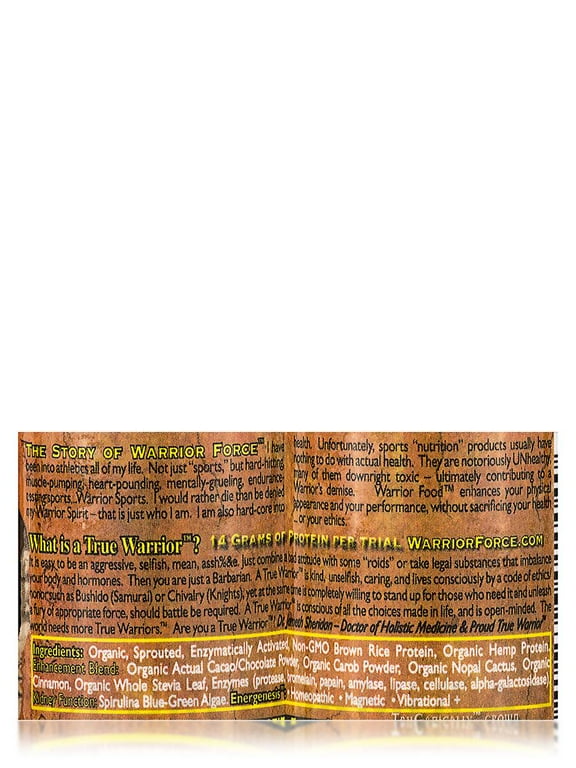 The Story of Warrior Force™ I have
been into athletics all of my life. Not just "sports," but hard-hitting,
muscle-pumping, heart-pounding, mentally-grueling, endurance-
testing sports...Warrior Sports. I would rather die than be denied
my Warrior Spirit – that is just who I am. I am also hard-core into
health. Unfortunately, sports "nutrition" products usually have
nothing to do with actual health. They are notoriously UNhealthy,
many of them downright toxic – ultimately contributing to a
Warrior's demise. Warrior Food™ enhances your physical
appearance and your performance, without sacrificing your health
... or your ethics.
What is a True Warrior™? 14 Grams of Protein per Trial WarriorForce.com
It is easy to be an aggressive, selfish, mean, assh%&e. Just combine a bad attitude with some "roids" or take legal substances that imbalance
your body and hormones. Then you are just a Barbarian. A True Warrior™ is kind, unselfish, caring, and lives consciously by a code of ethics/
honor such as Bushido (Samurai) or Chivalry (Knights), yet at the same time is completely willing to stand up for those who need it and unleash
a fury of appropriate force, should battle be required. A True Warrior™ is conscious of all the choices made in life, and is open-minded. The
world needs more True Warriors.™ Are you a True Warrior™? Sheridon – Doctor of Holistic Medicine & Proud True Warrior™
Ingredients: Organic, Sprouted, Enzymatically Activated, Non-GMO Brown Rice Protein, Organic Hemp Protein.
Enhancement Blend: Organic Actual Cacao/Chocolate Powder, Organic Carob Powder, Organic Nopal Cactus, Organic
Cinnamon, Organic Whole Stevia Leaf, Enzymes (protease, bromelain, papain, amylase, lipase, cellulase, alpha-galactosidase).
Kidney Function: Spirulina Blue-Green Algae. Energenesis™: Homeopathic • Magnetic • Vibrational +
TruGanically™ grown